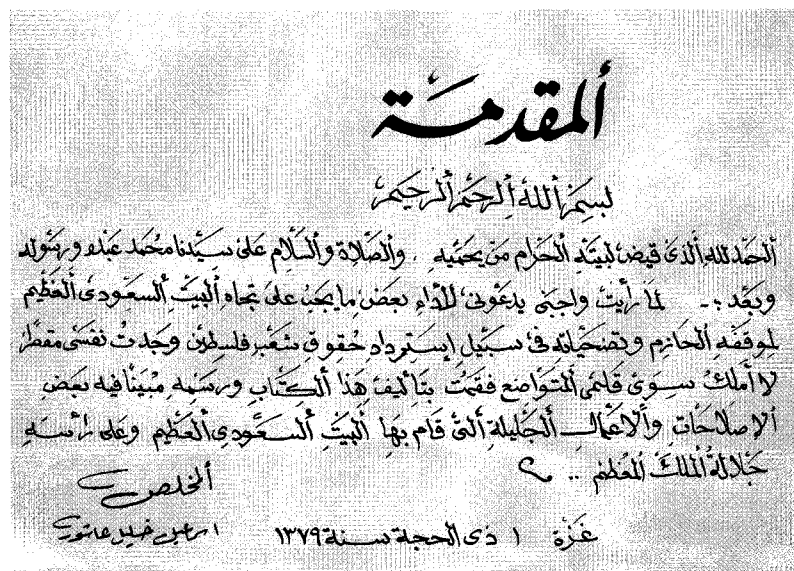 المقدمة
بسم الله الرحمن الرحيم
الحمد لله الذي قيض لبيته الحرام من يحميه . والصلاة والسلام على سيدنا محمد عبده ورسوله
وبعد :- لما رأيت واجبي يدعوني للأداء بعض ما يجب على تجاه البيت السعودي العظيم
لموقفه الحازم وتضحياته في سبيل إسترداد حقوق شعب فلسطين وجدت نفسي مضطرا
لا أملك سوى قلمي المتواضع فقمت بتأليف هذا الكتاب ورسمه مبينا فيه بعض
الإصلاحات والأعمال الجليلة التي قام بها البيت السعودي العظيم وعلى رأسه
جلالة الملك المعظم ..
المخلص
اسماعيل خليل عاشور
غزة ١ ذي الحجة سنة ١٣٧٩